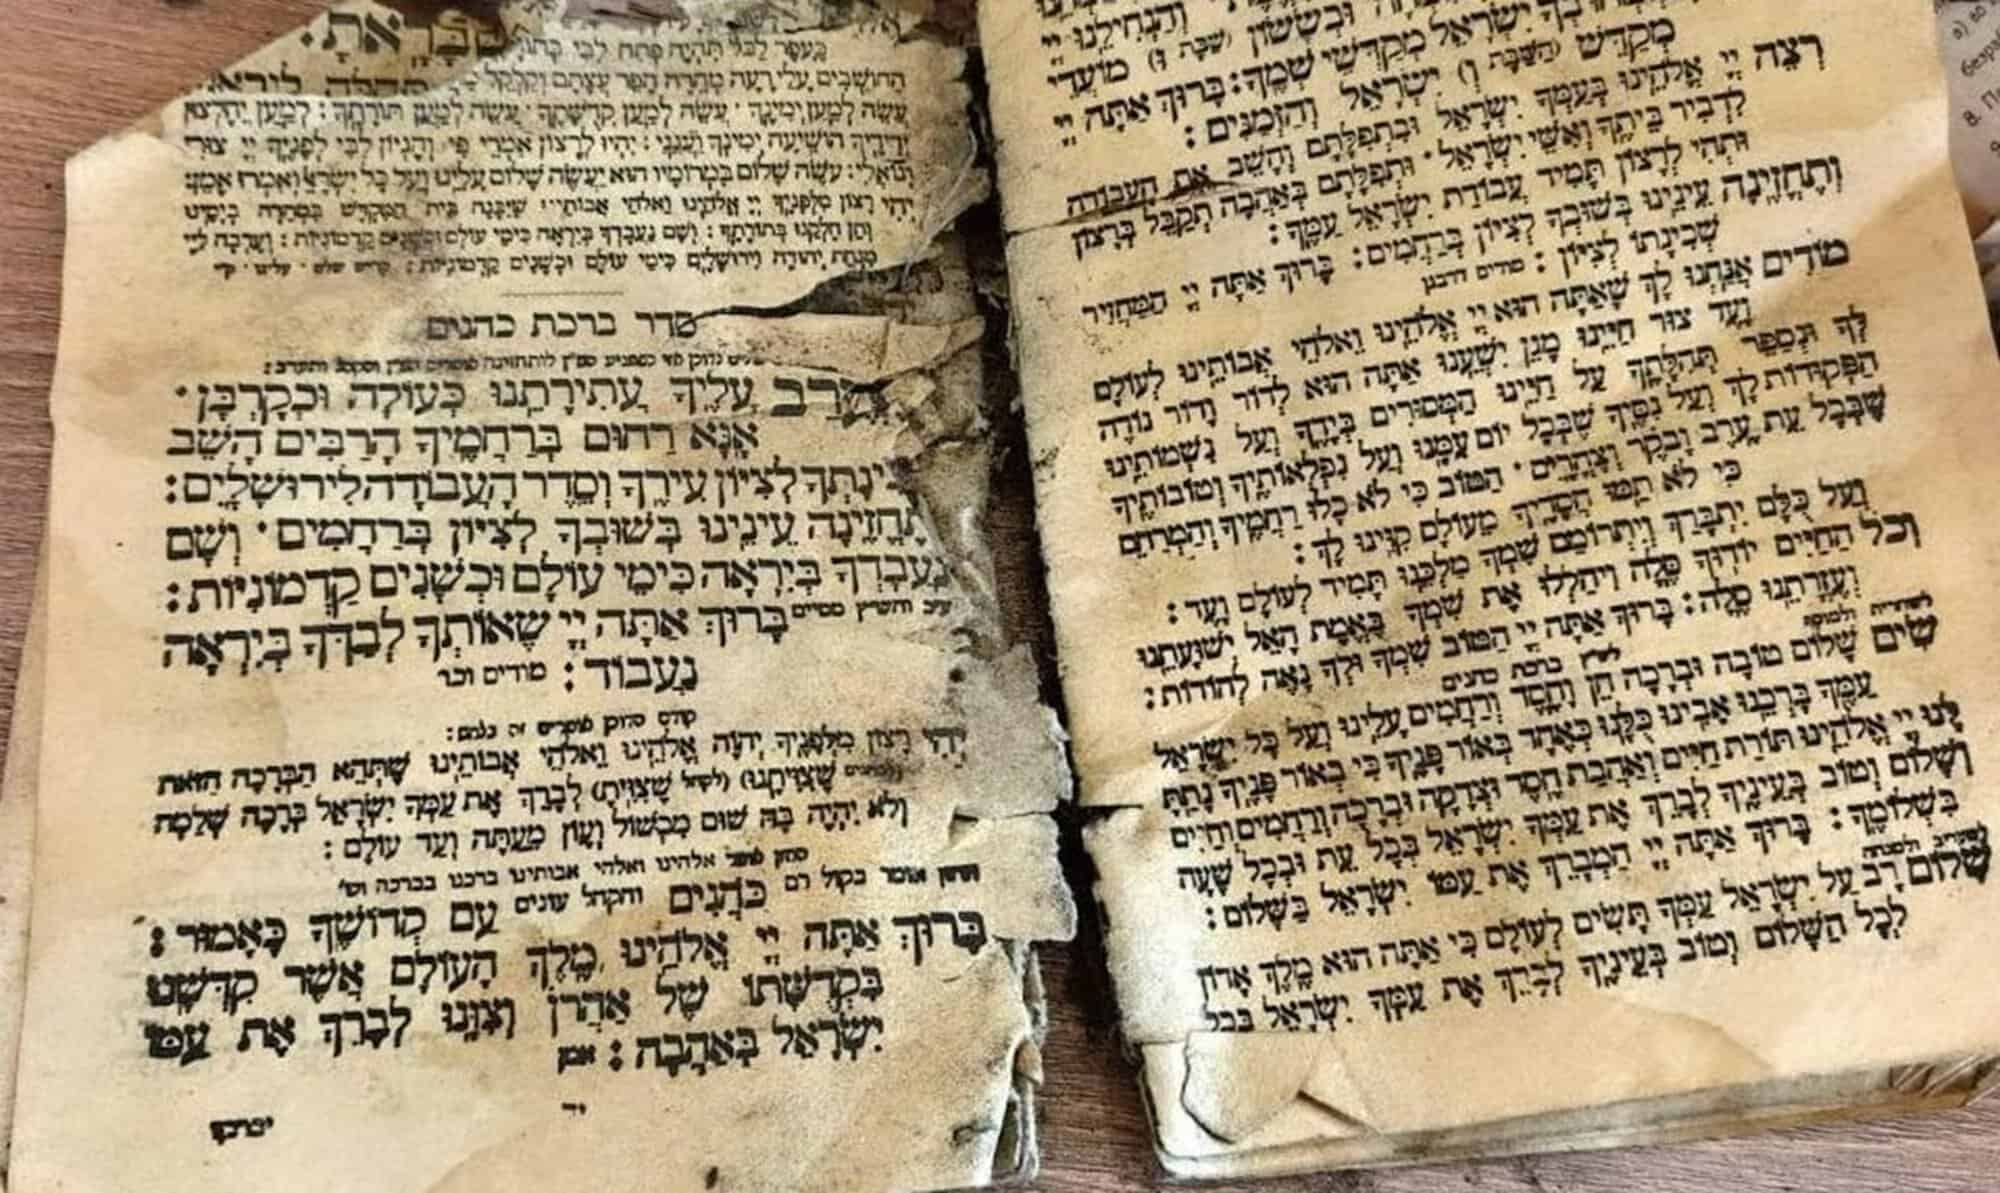 מִקְדַּשׁ יִשְׂרָאֵל מְקַדְּשֵׁי שְׁמֶךָ: בָּרוּךְ אַתָּה יְיָ
(הַשַּׁבָּת וְ) יִשְׂרָאֵל וְהַזְּמַנִּים:
רְצֵה יְיָ אֱלֹהֵינוּ בְּעַמְּךָ יִשְׂרָאֵל וּבִתְפִלָּתָם וְהָשֵׁב אֶת הָעֲבוֹדָה
לִדְבִיר בֵּיתֶךָ וְאִשֵּׁי יִשְׂרָאֵל. וּתְפִלָּתָם בְּאַהֲבָה תְקַבֵּל בְּרָצוֹן
וּתְהִי לְרָצוֹן תָּמִיד עֲבוֹדַת יִשְׂרָאֵל עַמֶּךָ:
וְתֶחֱזֶינָה עֵינֵינוּ בְּשׁוּבְךָ לְצִיּוֹן בְּרַחֲמִים: בָּרוּךְ אַתָּה יְיָ הַמַּחֲזִיר
שְׁכִינָתוֹ לְצִיּוֹן: מודים דרבנן
מוֹדִים אֲנַחְנוּ לָךְ שָׁאַתָּה הוּא יְיָ אֱלֹהֵינוּ וֵאלֹהֵי אֲבוֹתֵינוּ לְעוֹלָם
וָעֶד צוּר חַיֵּינוּ מָגֵן יִשְׁעֵנוּ אַתָּה הוּא לְדוֹר וָדוֹר נוֹדֶה
לְךָ וּנְסַפֵּר תְּהִלָּתֶךָ עַל חַיֵּינוּ הַמְּסוּרִים בְּיָדֶךָ וְעַל נִשְׁמוֹתֵינוּ
הַפְּקוּדוֹת לָךְ וְעַל נִסֶּיךָ שֶׁבְּכָל יוֹם עִמָּנוּ וְעַל נִפְלְאוֹתֶיךָ וְטוֹבוֹתֶיךָ
שֶׁבְּכָל עֵת עֶרֶב וָבֹקֶר וְצָהֳרָיִם. הַטּוֹב כִּי לֹא כָלוּ רַחֲמֶיךָ וְהַמְרַחֵם
כִּי לֹא תַמּוּ חֲסָדֶיךָ מֵעוֹלָם קִוִּינוּ לָךְ:
וְעַל כֻּלָּם יִתְבָּרַךְ וְיִתְרוֹמַם שִׁמְךָ מַלְכֵּנוּ תָּמִיד לְעוֹלָם וָעֶד:
וְכֹל הַחַיִּים יוֹדוּךָ סֶּלָה וִיהַלְלוּ אֶת שִׁמְךָ בֶּאֱמֶת הָאֵל יְשׁוּעָתֵנוּ
וְעֶזְרָתֵנוּ סֶלָה: בָּרוּךְ אַתָּה יְיָ הַטּוֹב שִׁמְךָ וּלְךָ נָאֶה לְהוֹדוֹת:
ברכת כהנים
שִׂים שָׁלוֹם טוֹבָה וּבְרָכָה חֵן וָחֶסֶד וְרַחֲמִים עָלֵינוּ וְעַל כָּל יִשְׂרָאֵל
עַמֶּךָ בָּרְכֵנוּ אָבִינוּ כֻּלָּנוּ כְּאֶחָד בְּאוֹר פָּנֶיךָ כִּי בְאוֹר פָּנֶיךָ נָתַתָּ
לָּנוּ יְיָ אֱלֹהֵינוּ תּוֹרַת חַיִּים וְאַהֲבַת חֶסֶד וּצְדָקָה וּבְרָכָה וְרַחֲמִים וְחַיִּים
וְשָׁלוֹם וְטוֹב בְּעֵינֶיךָ לְבָרֵךְ אֶת עַמְּךָ יִשְׂרָאֵל בְּכָל עֵת וּבְכָל שָׁעָה
בִּשְׁלוֹמֶךָ: בָּרוּךְ אַתָּה יְיָ הַמְבָרֵךְ אֶת עַמּוֹ יִשְׂרָאֵל בַּשָּׁלוֹם:
שָׁלוֹם רָב עַל יִשְׂרָאֵל עַמְּךָ תָּשִׂים לְעוֹלָם כִּי אַתָּה הוּא מֶלֶךְ אָדוֹן
לְכָל הַשָּׁלוֹם וְטוֹב בְּעֵינֶיךָ לְבָרֵךְ אֶת עַמְּךָ יִשְׂרָאֵל בְּכָל
כֶּעָפָר לַכֹּל תִּהְיֶה פְּתַח לִבִּי
הַחוֹשְׁבִים עָלַי רָעָה מְהֵרָה הָפֵר עֲצָתָם וְקַלְקֵל
עֲשֵׂה לְמַעַן יְמִינֶךָ. עֲשֵׂה לְמַעַן קְדֻשָּׁתֶךָ. עֲשֵׂה לְמַעַן תּוֹרָתֶךָ: לְמַעַן יֵחָלְצוּן
יְדִידֶיךָ הוֹשִׁיעָה יְמִינְךָ וַעֲנֵנִי: יִהְיוּ לְרָצוֹן אִמְרֵי פִי וְהֶגְיוֹן לִבִּי לְפָנֶיךָ יְיָ צוּרִי
וְגוֹאֲלִי: עֹשֶׂה שָׁלוֹם בִּמְרוֹמָיו הוּא יַעֲשֶׂה שָׁלוֹם עָלֵינוּ וְעַל כָּל יִשְׂרָאֵל וְאִמְרוּ אָמֵן
יְהִי רָצוֹן מִלְּפָנֶיךָ יְיָ אֱלֹהֵינוּ וֵאלֹהֵי אֲבוֹתֵינוּ שֶׁיִּבָּנֶה בֵּית הַמִּקְדָּשׁ בִּמְהֵרָה בְיָמֵינוּ
וְתֵן חֶלְקֵנוּ בְּתוֹרָתֶךָ: וְשָׁם נַעֲבָדְךָ בְּיִרְאָה כִּימֵי עוֹלָם וּכְשָׁנִים קַדְמוֹנִיּוֹת: וְעָרְבָה לַיְיָ
מִנְחַת יְהוּדָה וִירוּשָׁלָיִם כִּימֵי עוֹלָם וּכְשָׁנִים קַדְמוֹנִיּוֹת:
סדר ברכת כהנים
עָלֶיךָ עֲתִירָתֵנוּ כְּעוֹלָה וּכְקָרְבָּן.
אָנָּא רַחוּם בְּרַחֲמֶיךָ הָרַבִּים הָשֵׁב
לְצִיּוֹן עִירֶךָ וְסֵדֶר הָעֲבוֹדָה לִירוּשָׁלָיִם:
תֶחֱזֶינָה עֵינֵינוּ בְּשׁוּבְךָ לְצִיּוֹן בְּרַחֲמִים. וְשָׁם
נַעֲבָדְךָ בְּיִרְאָה כִּימֵי עוֹלָם וּכְשָׁנִים קַדְמוֹנִיּוֹת:
בָּרוּךְ אַתָּה יְיָ שֶׁאוֹתְךָ לְבַדְּךָ בְּיִרְאָה
נַעֲבוֹד: מודים וכו
יְהִי רָצוֹן מִלְּפָנֶיךָ יְהֹוָה אֱלֹהֵינוּ וֵאלֹהֵי אֲבוֹתֵינוּ שֶׁתְּהֵא הַבְּרָכָה הַזֹּאת
שֶׁצִּוִּיתָנוּ (לקהל שֶׁצִּוִּיתָ) לְבָרֵךְ אֶת עַמְּךָ יִשְׂרָאֵל בְּרָכָה שְׁלֵמָה
וְלֹא יִהְיֶה בָּהּ שׁוּם מִכְשׁוֹל וְעָוֹן מֵעַתָּה וְעַד עוֹלָם:
אלהינו ואלהי אבותינו ברכנו בברכה וכו'
החזן אומר בקול רם כֹּהֲנִים והקהל עונים עַם קְדוֹשֶׁךָ כָּאָמוּר:
בָּרוּךְ אַתָּה יְיָ אֱלֹהֵינוּ מֶלֶךְ הָעוֹלָם אֲשֶׁר קִדְּשָׁנוּ
בִּקְדֻשָּׁתוֹ שֶׁל אַהֲרֹן וְצִוָּנוּ לְבָרֵךְ אֶת עַמּוֹ
יִשְׂרָאֵל בְּאַהֲבָה: אמן
יברכך